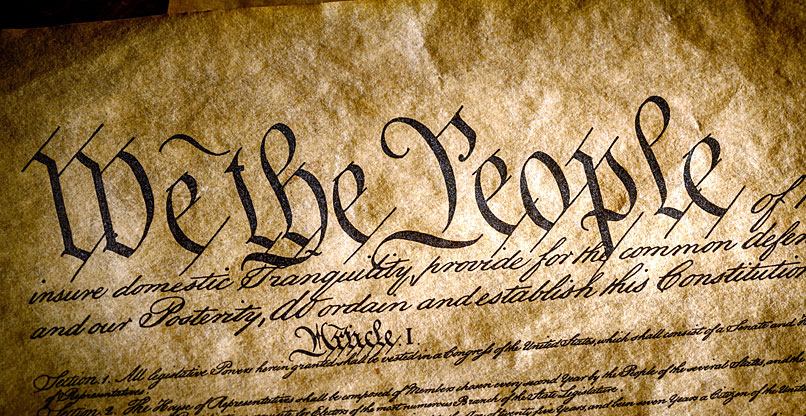 We the People of
insure domestic Tranquility, provide for the common defen
and our Posterity, do ordain and establish this Constitution
Article. I.
Section. 1. All legislative Powers herein granted shall be vested in a Congress of the United States, which shall consist of a Senate and
of Representatives.
Section. 2. The House of Representatives shall be composed of Members chosen every second Year by the People of the several States, and the
for Electors of the most numerous Branch of the State Legislature.
of twenty five Years, and been seven Years a Citizen of the United